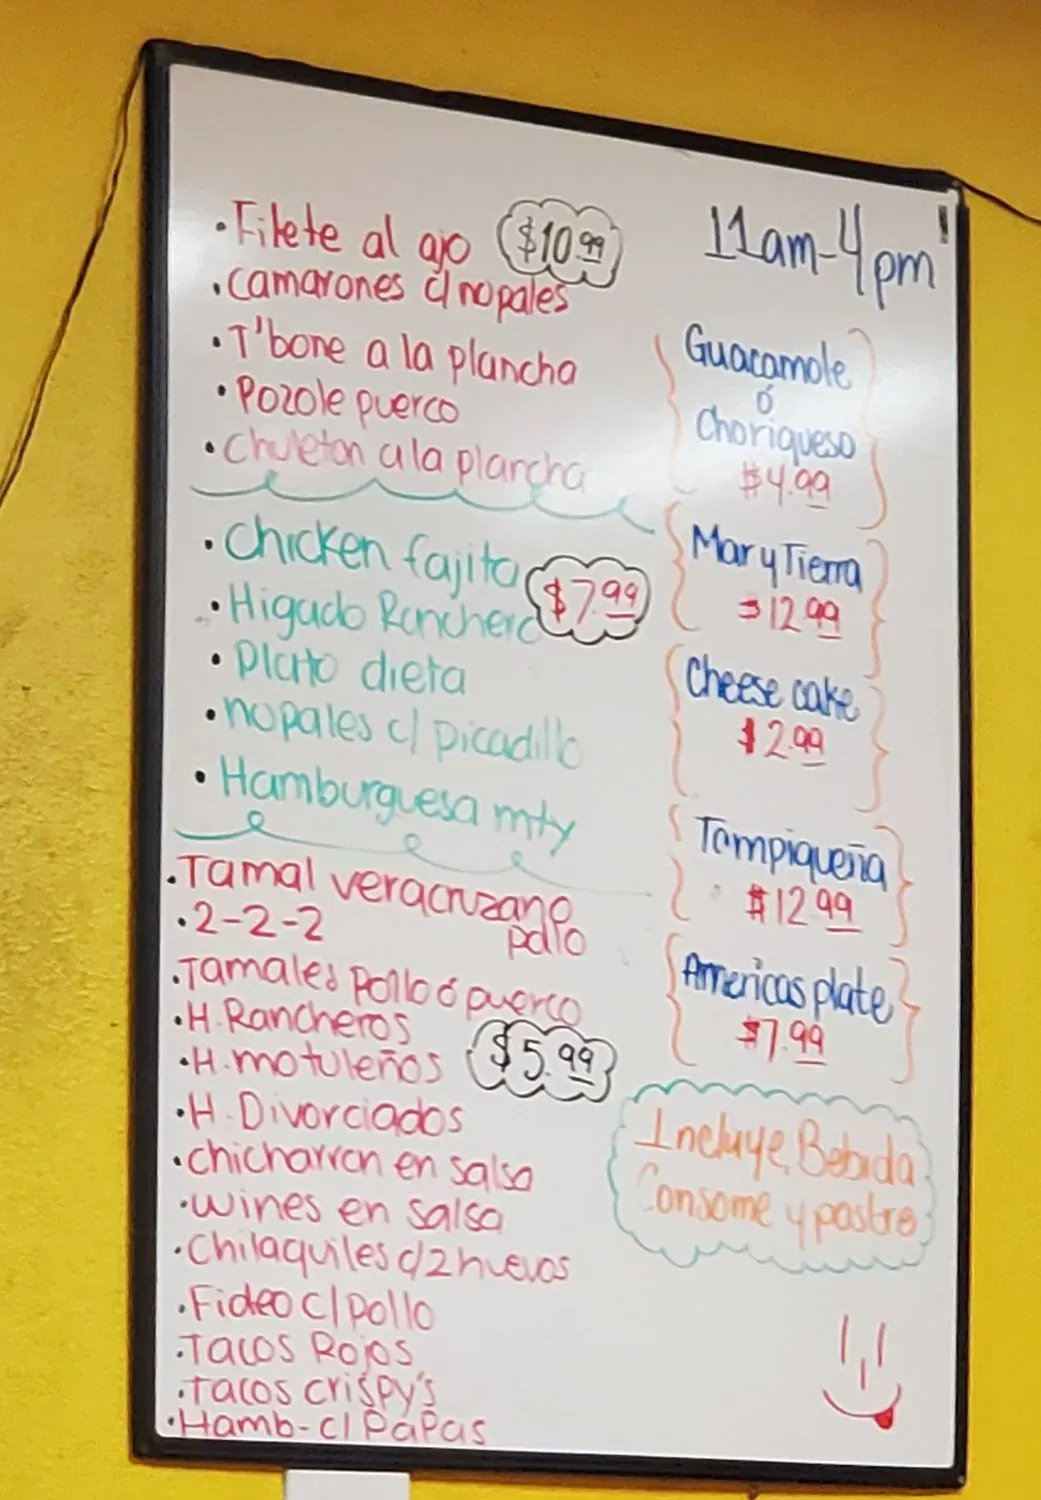 •Filete al ajo $10.99
•camarones c/ nopales
•T'bone a la plancha
•Pozole puerco
•Chuleton a la plancha
•Chicken fajita $7.99
•Higado Ranchero
•Plato dieta
•nopales c/ picadillo
•Hamburguesa mty
•Tamal veracruzano
pollo
•2-2-2
•Tamales pollo ó puerco
•H. Rancheros
•H. motuleños $5.99
•H. Divorciados
•chicharron en salsa
•wines en salsa
•Chilaquiles c/2 huevos
•Fideo c/ pollo
•Tacos Rojos
•Tacos crispy's
•Hamb-c/ PaPas
11am-4pm
Guacamole
ó
Choriqueso
$4.99
Mar y Tierra
$12.99
Cheese cake
$2.99
Tampiqueña
$12.99
Americas plate
$7.99
Incluye Bebida
Consome y postre